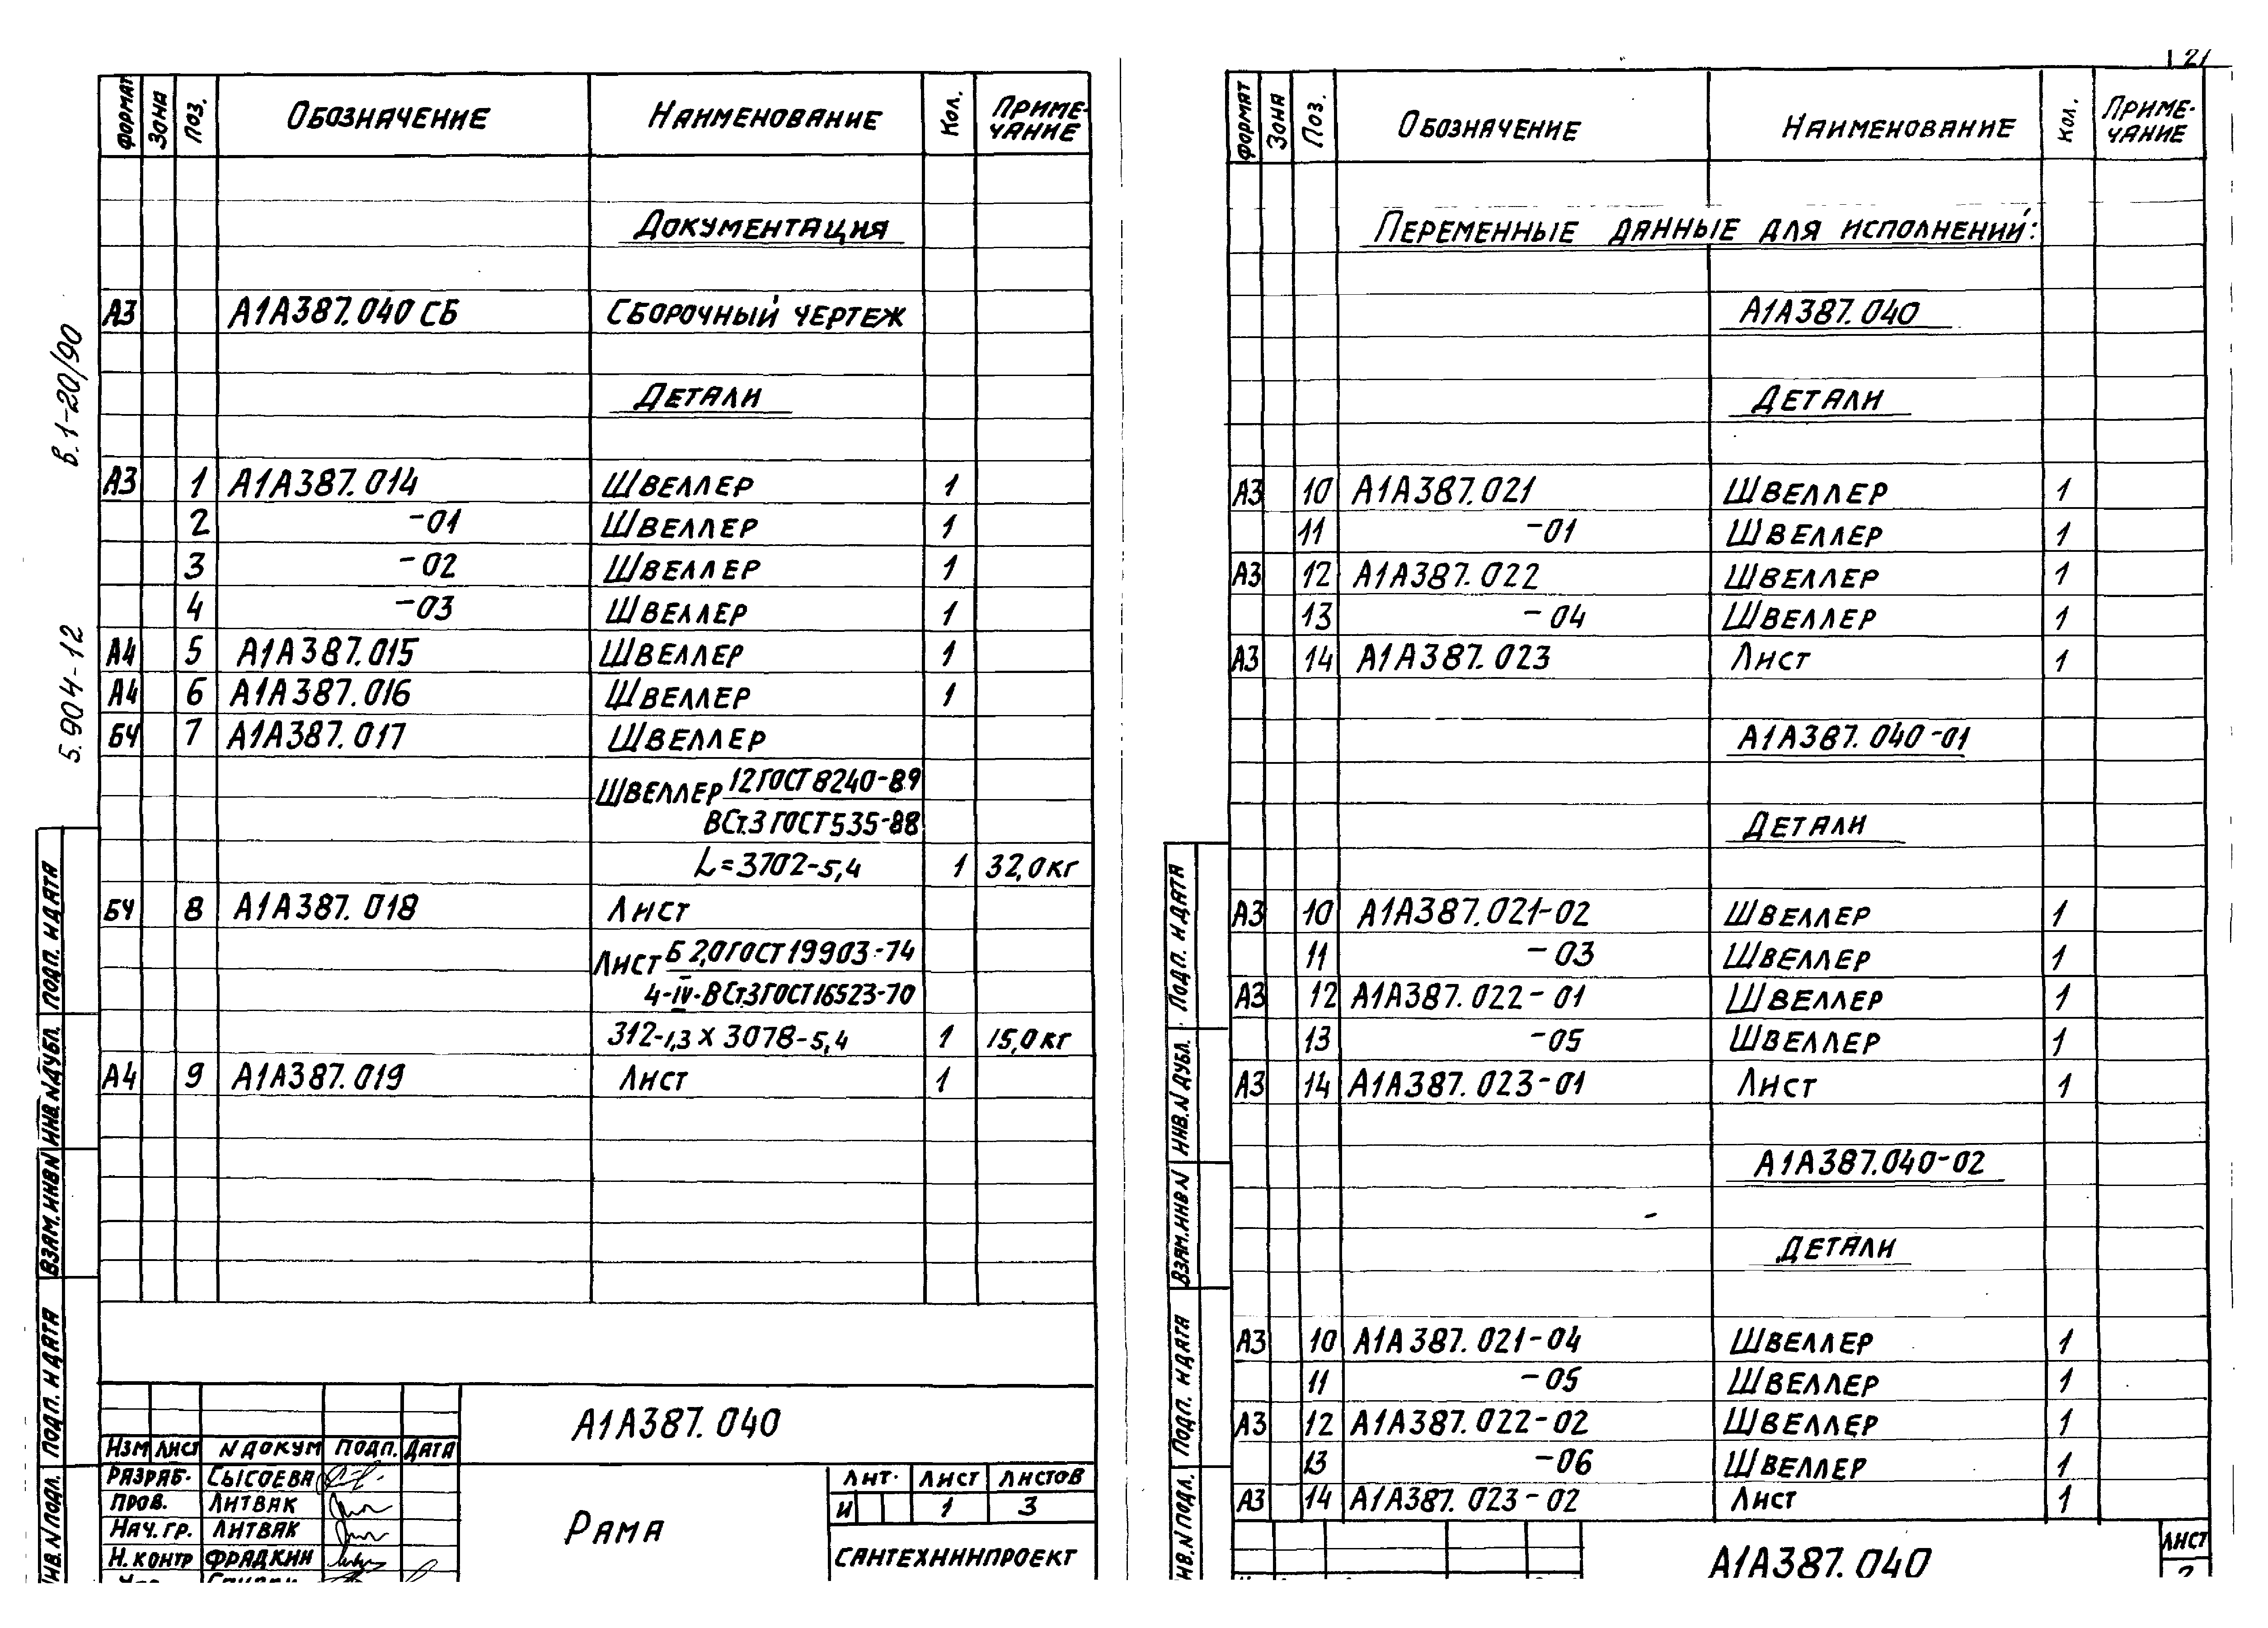 21
В.1-20/90
5.904-12
ФОРМАТ ЗОНА ПОЗ. ОБОЗНАЧЕНИЕ НАИМЕНОВАНИЕ КОЛ. ПРИМЕ-
ЧАНИЕ
ДОКУМЕНТАЦИЯ
А3 А1А387.040 СБ СБОРОЧНЫЙ ЧЕРТЕЖ
ДЕТАЛИ
А3 1 А1А387.014 ШВЕЛЛЕР 1
2 -01 ШВЕЛЛЕР 1
3 -02 ШВЕЛЛЕР 1
4 -03 ШВЕЛЛЕР 1
А4 5 А1А387.015 ШВЕЛЛЕР 1
А4 6 А1А387.016 ШВЕЛЛЕР 1
БЧ 7 А1А387.017 ШВЕЛЛЕР
ШВЕЛЛЕР 12 ГОСТ 8240-89
ВСт.3 ГОСТ 535-88
L=3702-5,4 1 32,0 кг
БЧ 8 А1А387.018 ЛИСТ
ЛИСТ Б 2,0 ГОСТ 19903-74
4-IV-ВСт.3 ГОСТ 16523-70
312-1,3 х 3078-5,4 1 15,0 кг
А4 9 А1А387.019 ЛИСТ 1
ПОДП. И ДАТА
ИНВ. N ДУБЛ.
ВЗАМ. ИНВ N
ПОДП. И ДАТА
ИНВ. N ПОДЛ.
А1А387.040
ИЗМ ЛИСТ N ДОКУМ ПОДП. ДАТА
РАЗРАБ. СЫСОЕВА
ПРОВ. ЛИТВАК
НАЧ. ГР. ЛИТВАК
Н. КОНТР ФРАДКИН
РАМА
ЛИТ. ЛИСТ ЛИСТОВ
И 1 3
САНТЕХНИИПРОЕКТ
ФОРМАТ ЗОНА ПОЗ. ОБОЗНАЧЕНИЕ НАИМЕНОВАНИЕ КОЛ. ПРИМЕ-
ЧАНИЕ
ПЕРЕМЕННЫЕ ДАННЫЕ ДЛЯ ИСПОЛНЕНИЙ:
А1А387.040
ДЕТАЛИ
А3 10 А1А387.021 ШВЕЛЛЕР 1
11 -01 ШВЕЛЛЕР 1
А3 12 А1А387.022 ШВЕЛЛЕР 1
13 -04 ШВЕЛЛЕР 1
А3 14 А1А387.023 ЛИСТ 1
А1А387.040-01
ДЕТАЛИ
А3 10 А1А387.021-02 ШВЕЛЛЕР 1
11 -03 ШВЕЛЛЕР 1
А3 12 А1А387.022-01 ШВЕЛЛЕР 1
13 -05 ШВЕЛЛЕР 1
А3 14 А1А387.023-01 ЛИСТ 1
А1А387.040-02
ДЕТАЛИ
А3 10 А1А387.021-04 ШВЕЛЛЕР 1
11 -05 ШВЕЛЛЕР 1
А3 12 А1А387.022-02 ШВЕЛЛЕР 1
13 -06 ШВЕЛЛЕР 1
А3 14 А1А387.023-02 ЛИСТ 1
ПОДП. И ДАТА
ИНВ. N ДУБЛ.
ВЗАМ. ИНВ N
ПОДП. И ДАТА
ИНВ. N ПОДЛ.
А1А387.040
ЛИСТ
2